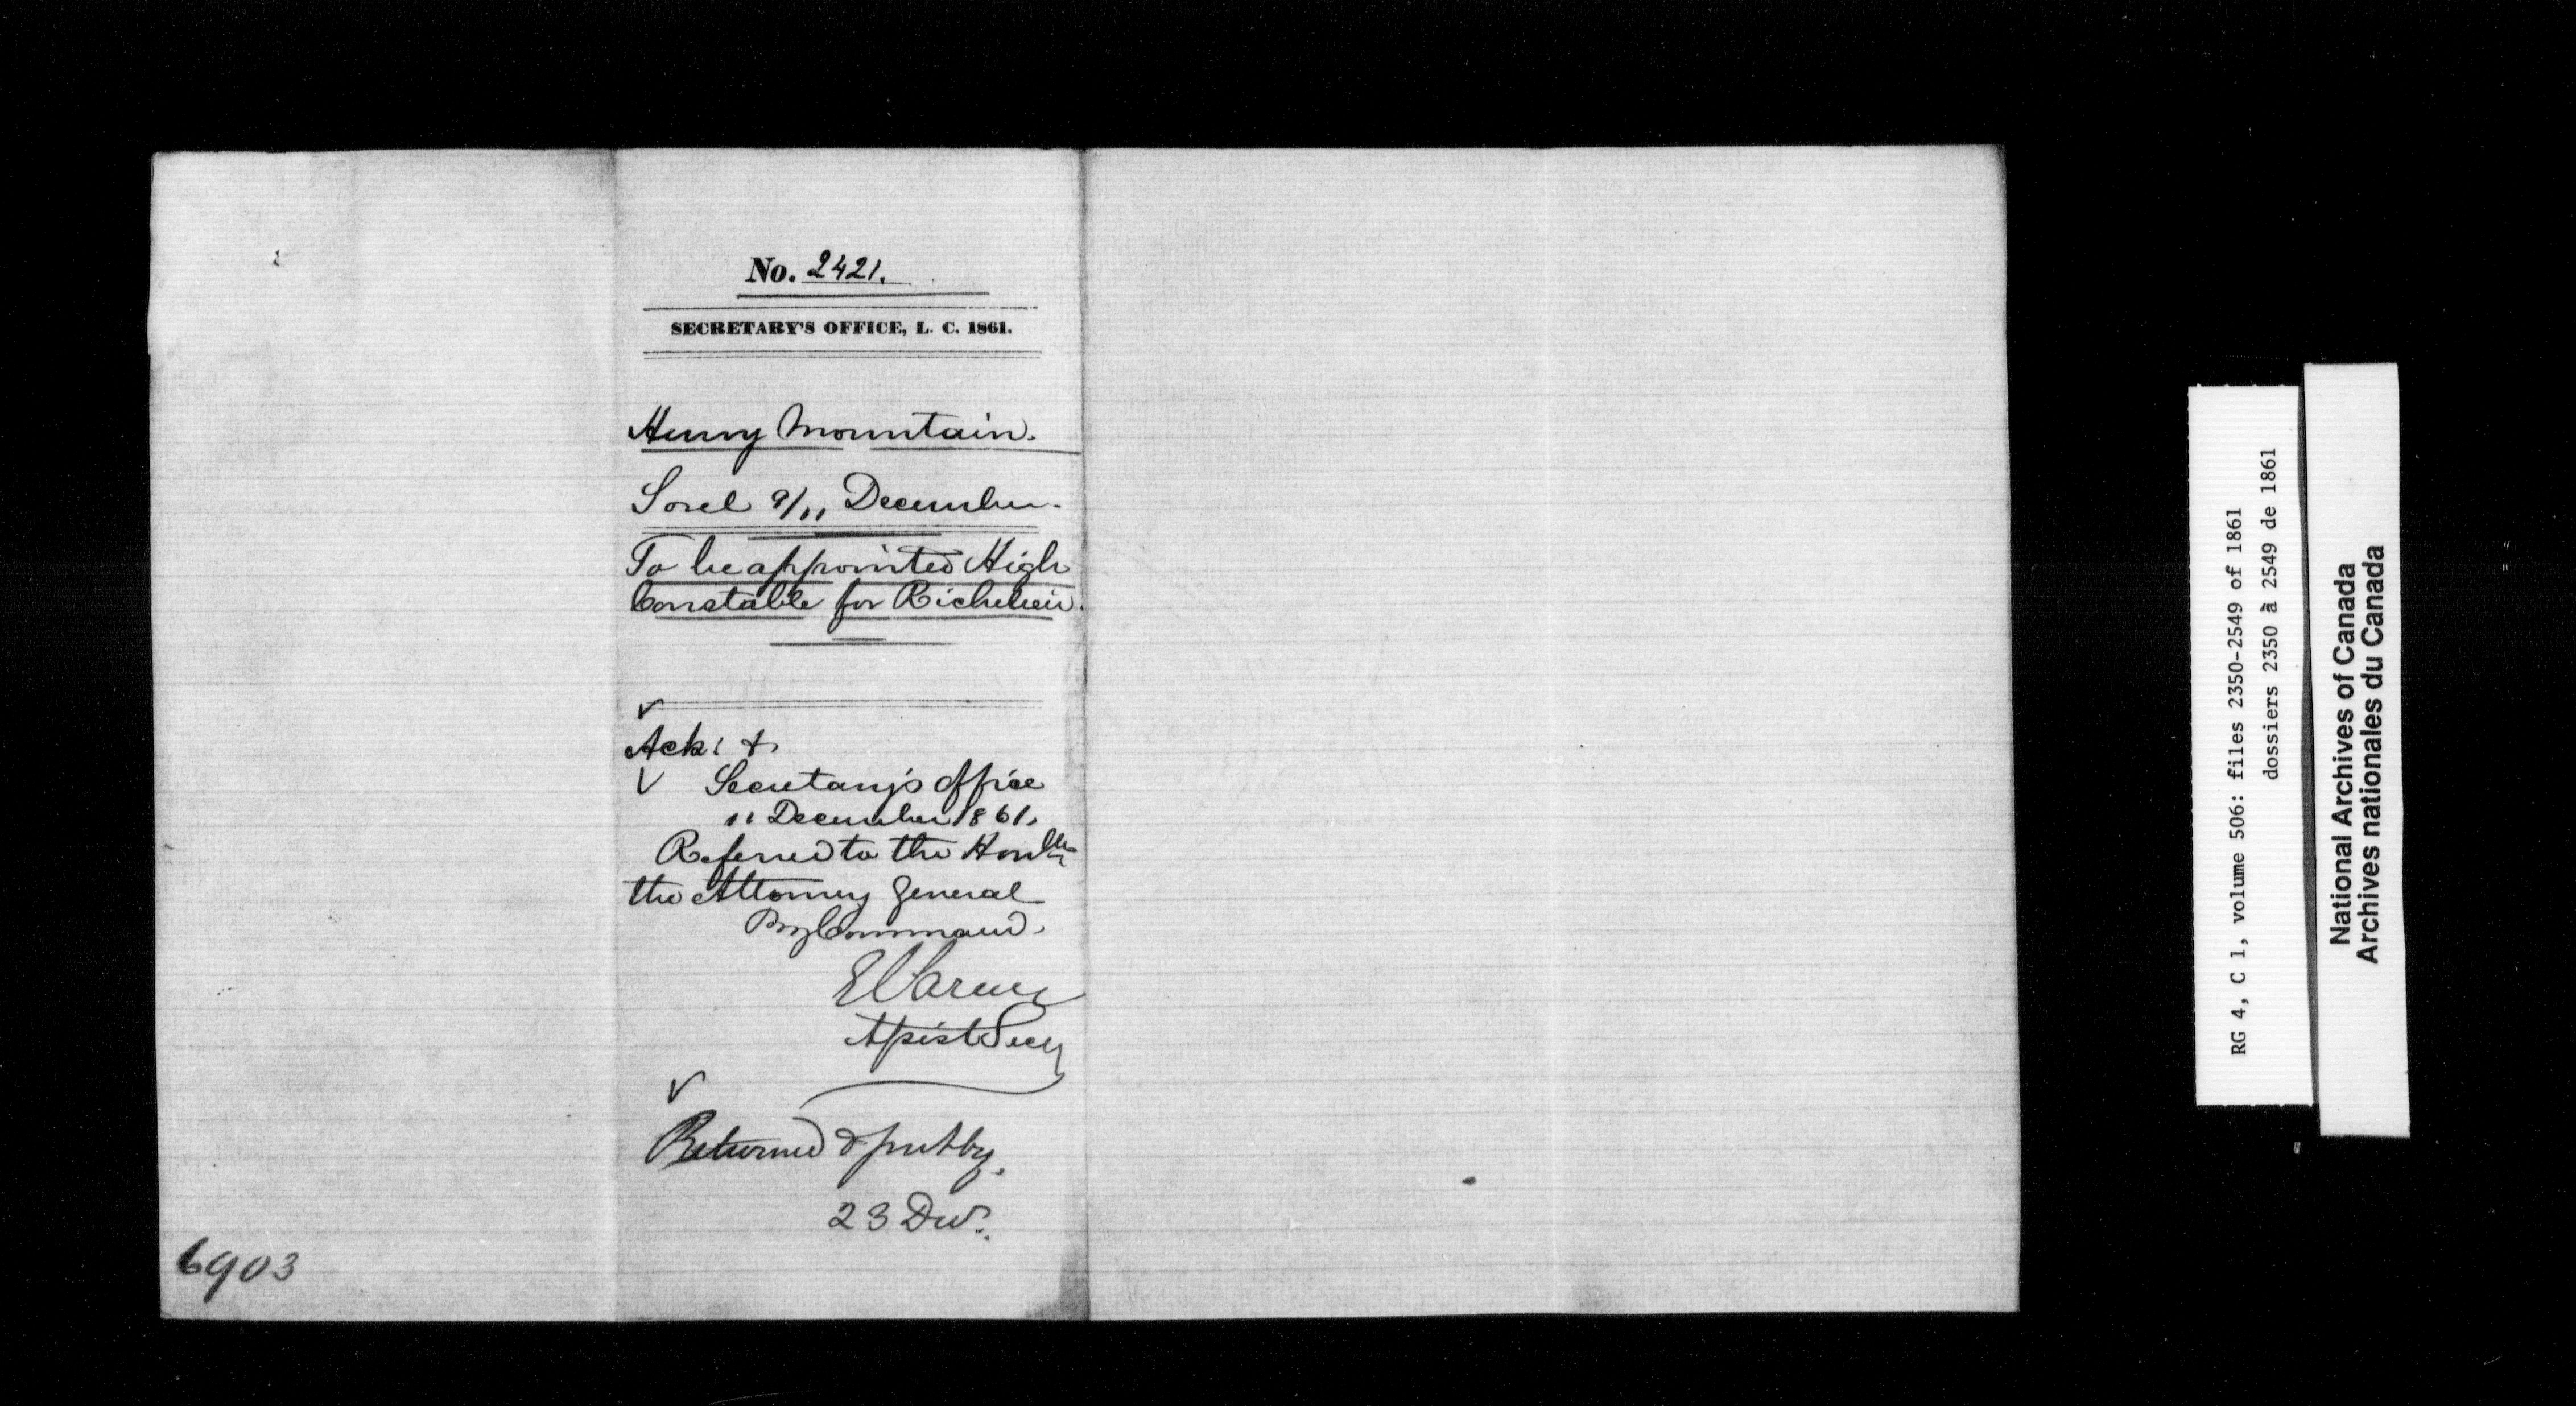 No. 2421.
SECRETARY'S OFFICE, L. C. 1861.
Henry Mountain.
Sorel 9/11 December.
To be appointed High
Constable for Richelieu.
Ack: &
Secretary's Office
11 December 1861.
Referred to the Honble
the Attorney General
By Command.
Assist Secy
Returned & put by.
23 Dec.
6903
RG 4, C 1, volume 506: files 2350-2549 of 1861
dossiers 2350 à 2549 de 1861
National Archives of Canada
Archives nationales du Canada